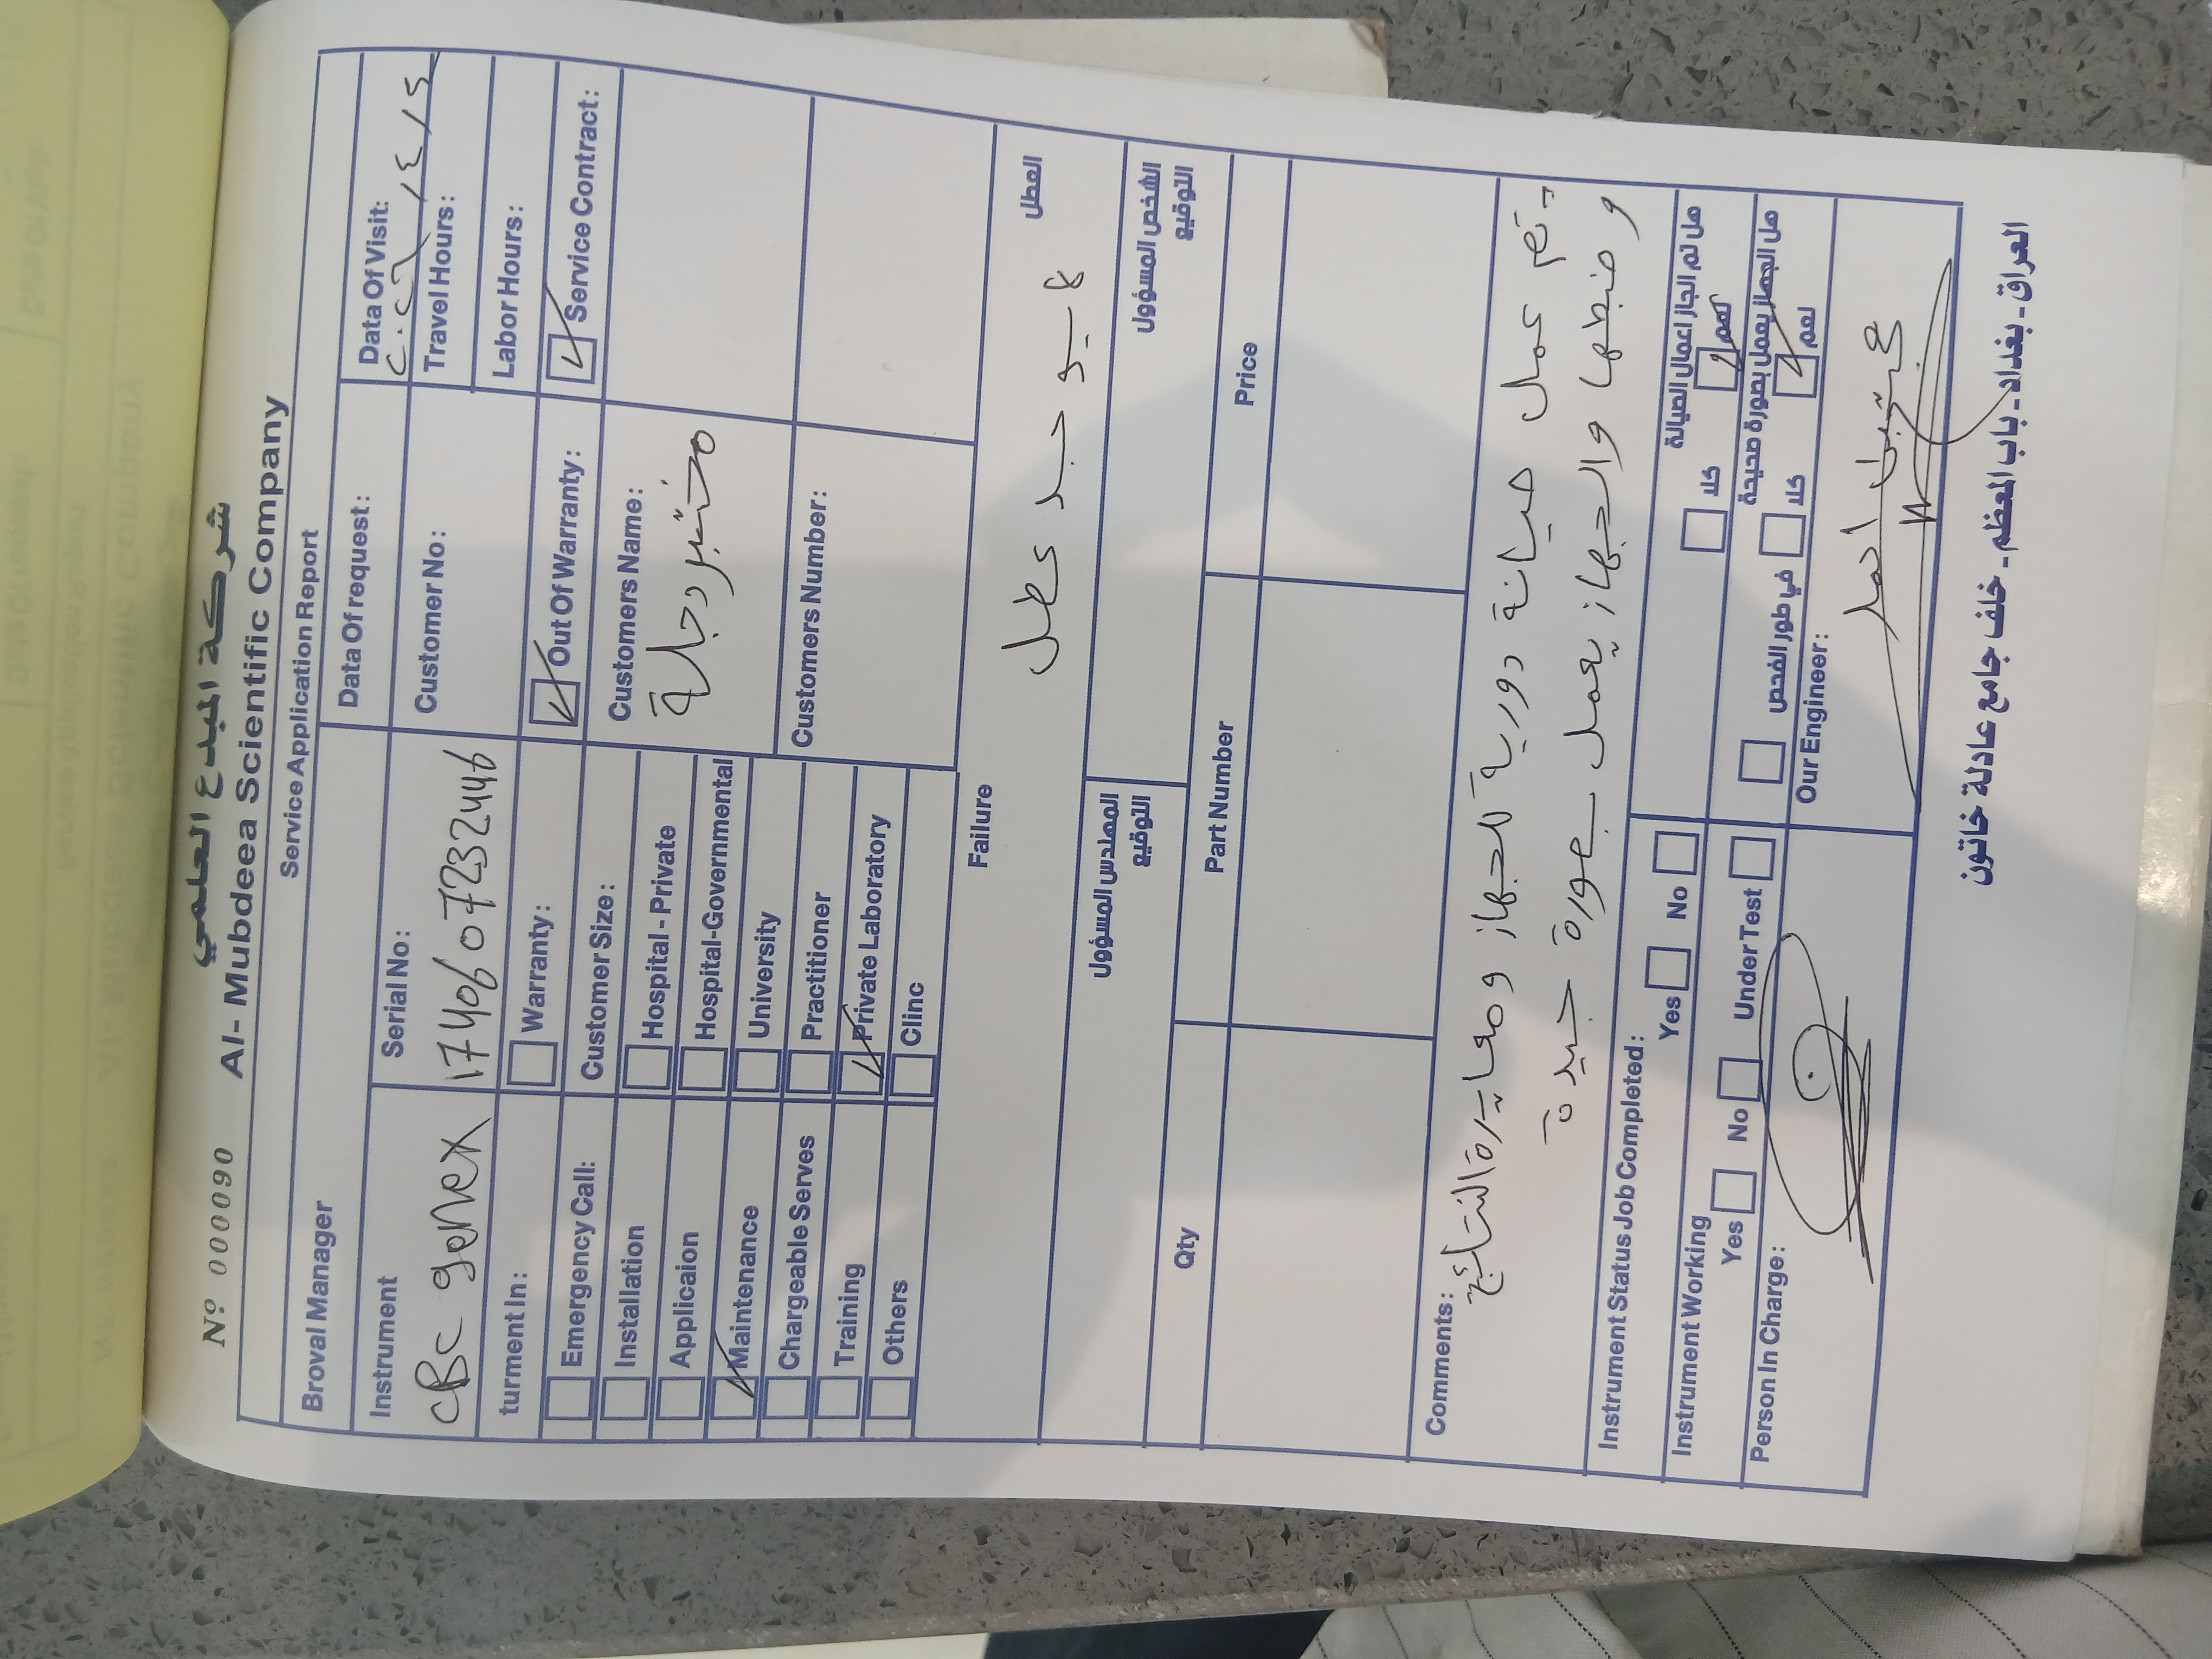 شركة المبدع العلمي
Nº 000090 Al- Mubdeea Scientific Company
Service Application Report
Broval Manager
Data Of request:
Data Of Visit:
٢٠٢٦/٤/٢
Instrument
CBC genex
Serial No:
1740607232446
Customer No:
Travel Hours:
Labor Hours:
turment In:
Warranty:
Out Of Warranty:
Service Contract:
Emergency Call:
Installation
Applicaion
Maintenance
Chargeable Serves
Training
Others
Customer Size:
Hospital - Private
Hospital-Governmental
University
Practitioner
Private Laboratory
Clinc
Customers Name:
مختبر دجلة
Customers Number:
Failure
العطل
لا يوجد عطل
المهندس المسؤول
التوقيع
الشخص المسؤول
التوقيع
Qty
Part Number
Price
Comments:
تم عمل صيانة دورية للجهاز ومعايرة النتائج
و ضبطها والجهاز يعمل بصورة جيدة
Instrument Status Job Completed:
Yes No
هل تم انجاز اعمال الصيانة
كلا نعم
Instrument Working
Yes No Under Test
هل الجهاز يعمل بصورة صحيحة
في طور الفحص كلا نعم
Person In Charge:
Our Engineer:
احمد
العراق - بغداد - باب المعظم - خلف جامع عادلة خاتون